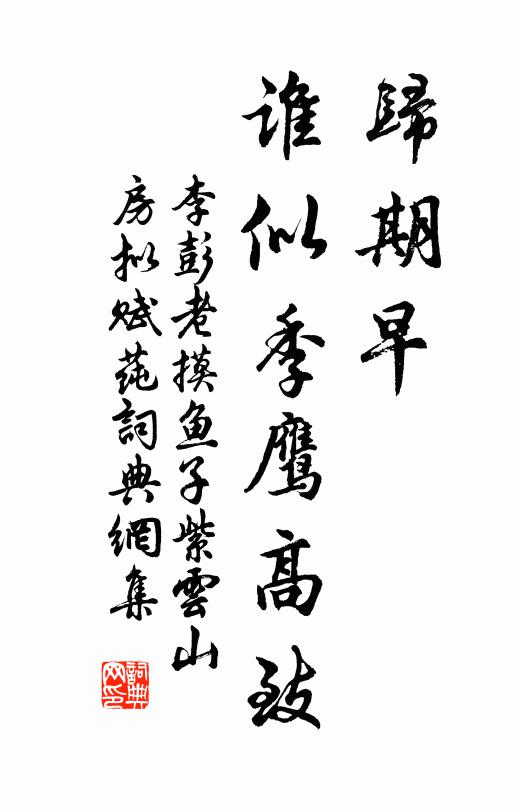 歸期早
誰似季鷹高致
李彭老摸魚子紫雲山
房拟赋莼詞典網集
詞典网印